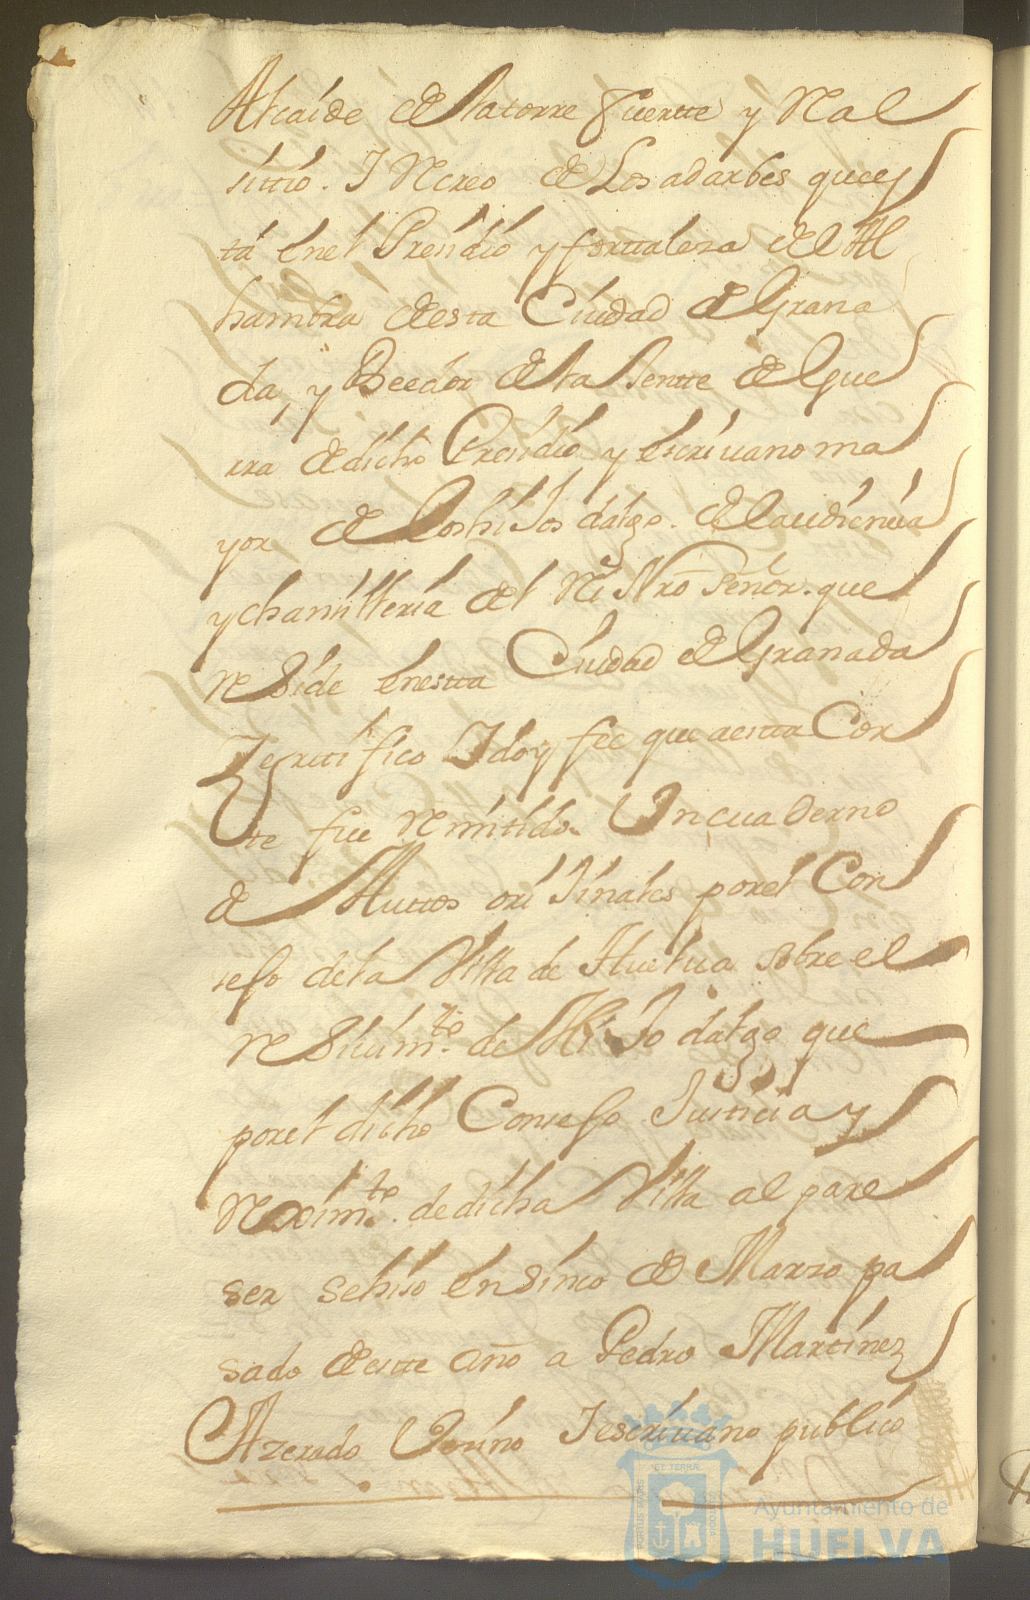 Alcaide de la torre fuertte y Real
sittio. I Recreo de Los adarbes que es
ta en el Presidio y fortaleza del Al
hambra de esta Ciudad de Grana
da, y Beedor de la Jentte de gue
rra de dicho Presidio y escriuano ma
yor de los hiJos dalgo. de la audiencia
y chansilleria del Rei Nro Señor. que
reSide en estta Ciudad de Granada
Zerttifico I doy fee que a estta Cor
te fue Remitido Un cuaderno
de Auttos oriJinales por el Con
sejo de la Villa de Huelua sobre el
reSiuimto. de HiJo dalgo que
por el dicho Consejo Justicia y
Reximto. de dicha Villa al pare
ser se hiso en Sinco de Marzo pa
sado de estte año a Pedro Martinez
Azerado Vesino I escriuano publico
PORTUS MARIS
ET TERRAE
CUSTODIA
Ayuntamiento de
HUELVA